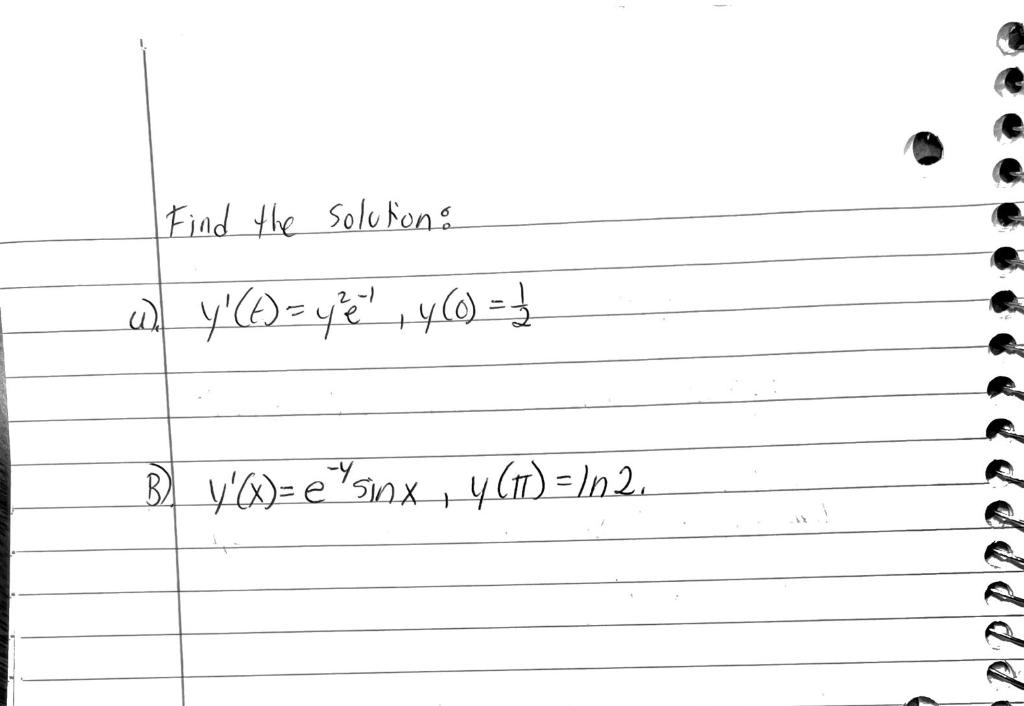 Find the solution:
a). y'(t) = y²e⁻¹, y(0) = 1/2
B). y'(x) = e⁻ʸ sin x, y(π) = ln 2.